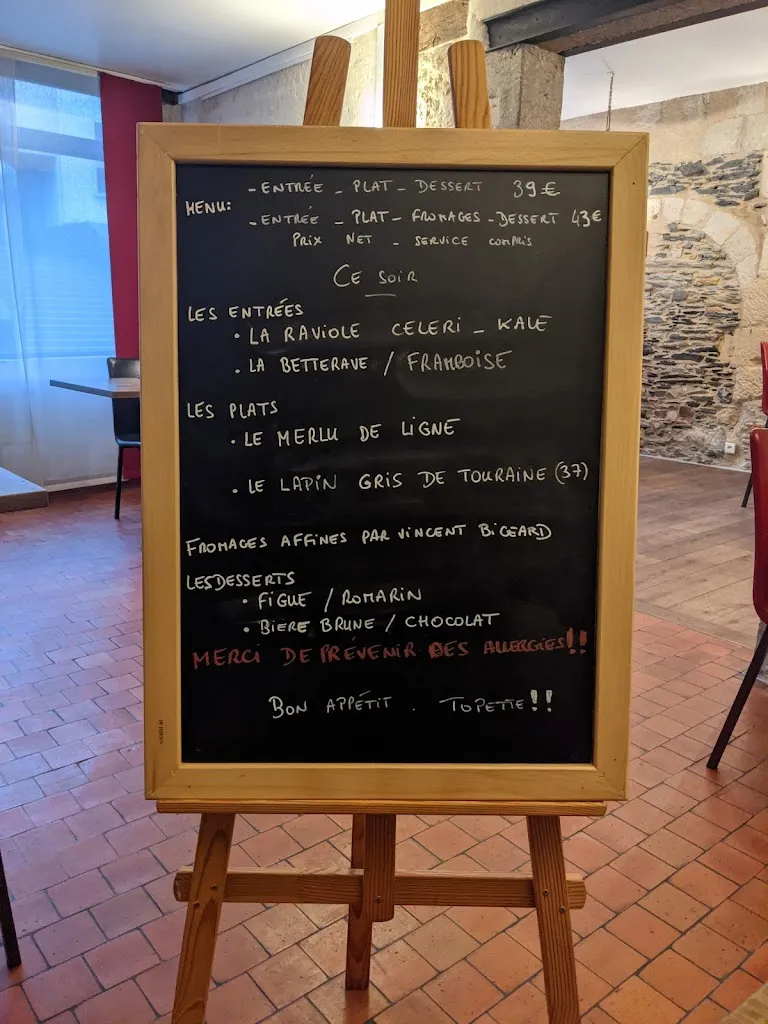 - ENTRÉE - PLAT - DESSERT 39€
MENU:
- ENTRÉE - PLAT - FROMAGES - DESSERT 43€
PRIX NET - SERVICE COMPRIS
CE SOIR
LES ENTRÉES
• LA RAVIOLE CELERI - KALE
• LA BETTERAVE / FRAMBOISE
LES PLATS
• LE MERLU DE LIGNE
• LE LAPIN GRIS DE TOURAINE (37)
FROMAGES AFFINES PAR VINCENT BIGEARD
LES DESSERTS
• FIGUE / ROMARIN
• BIERE BRUNE / CHOCOLAT
MERCI DE PRÉVENIR DES ALLERGIES!!
BON APPÉTIT . TOPETTE!!